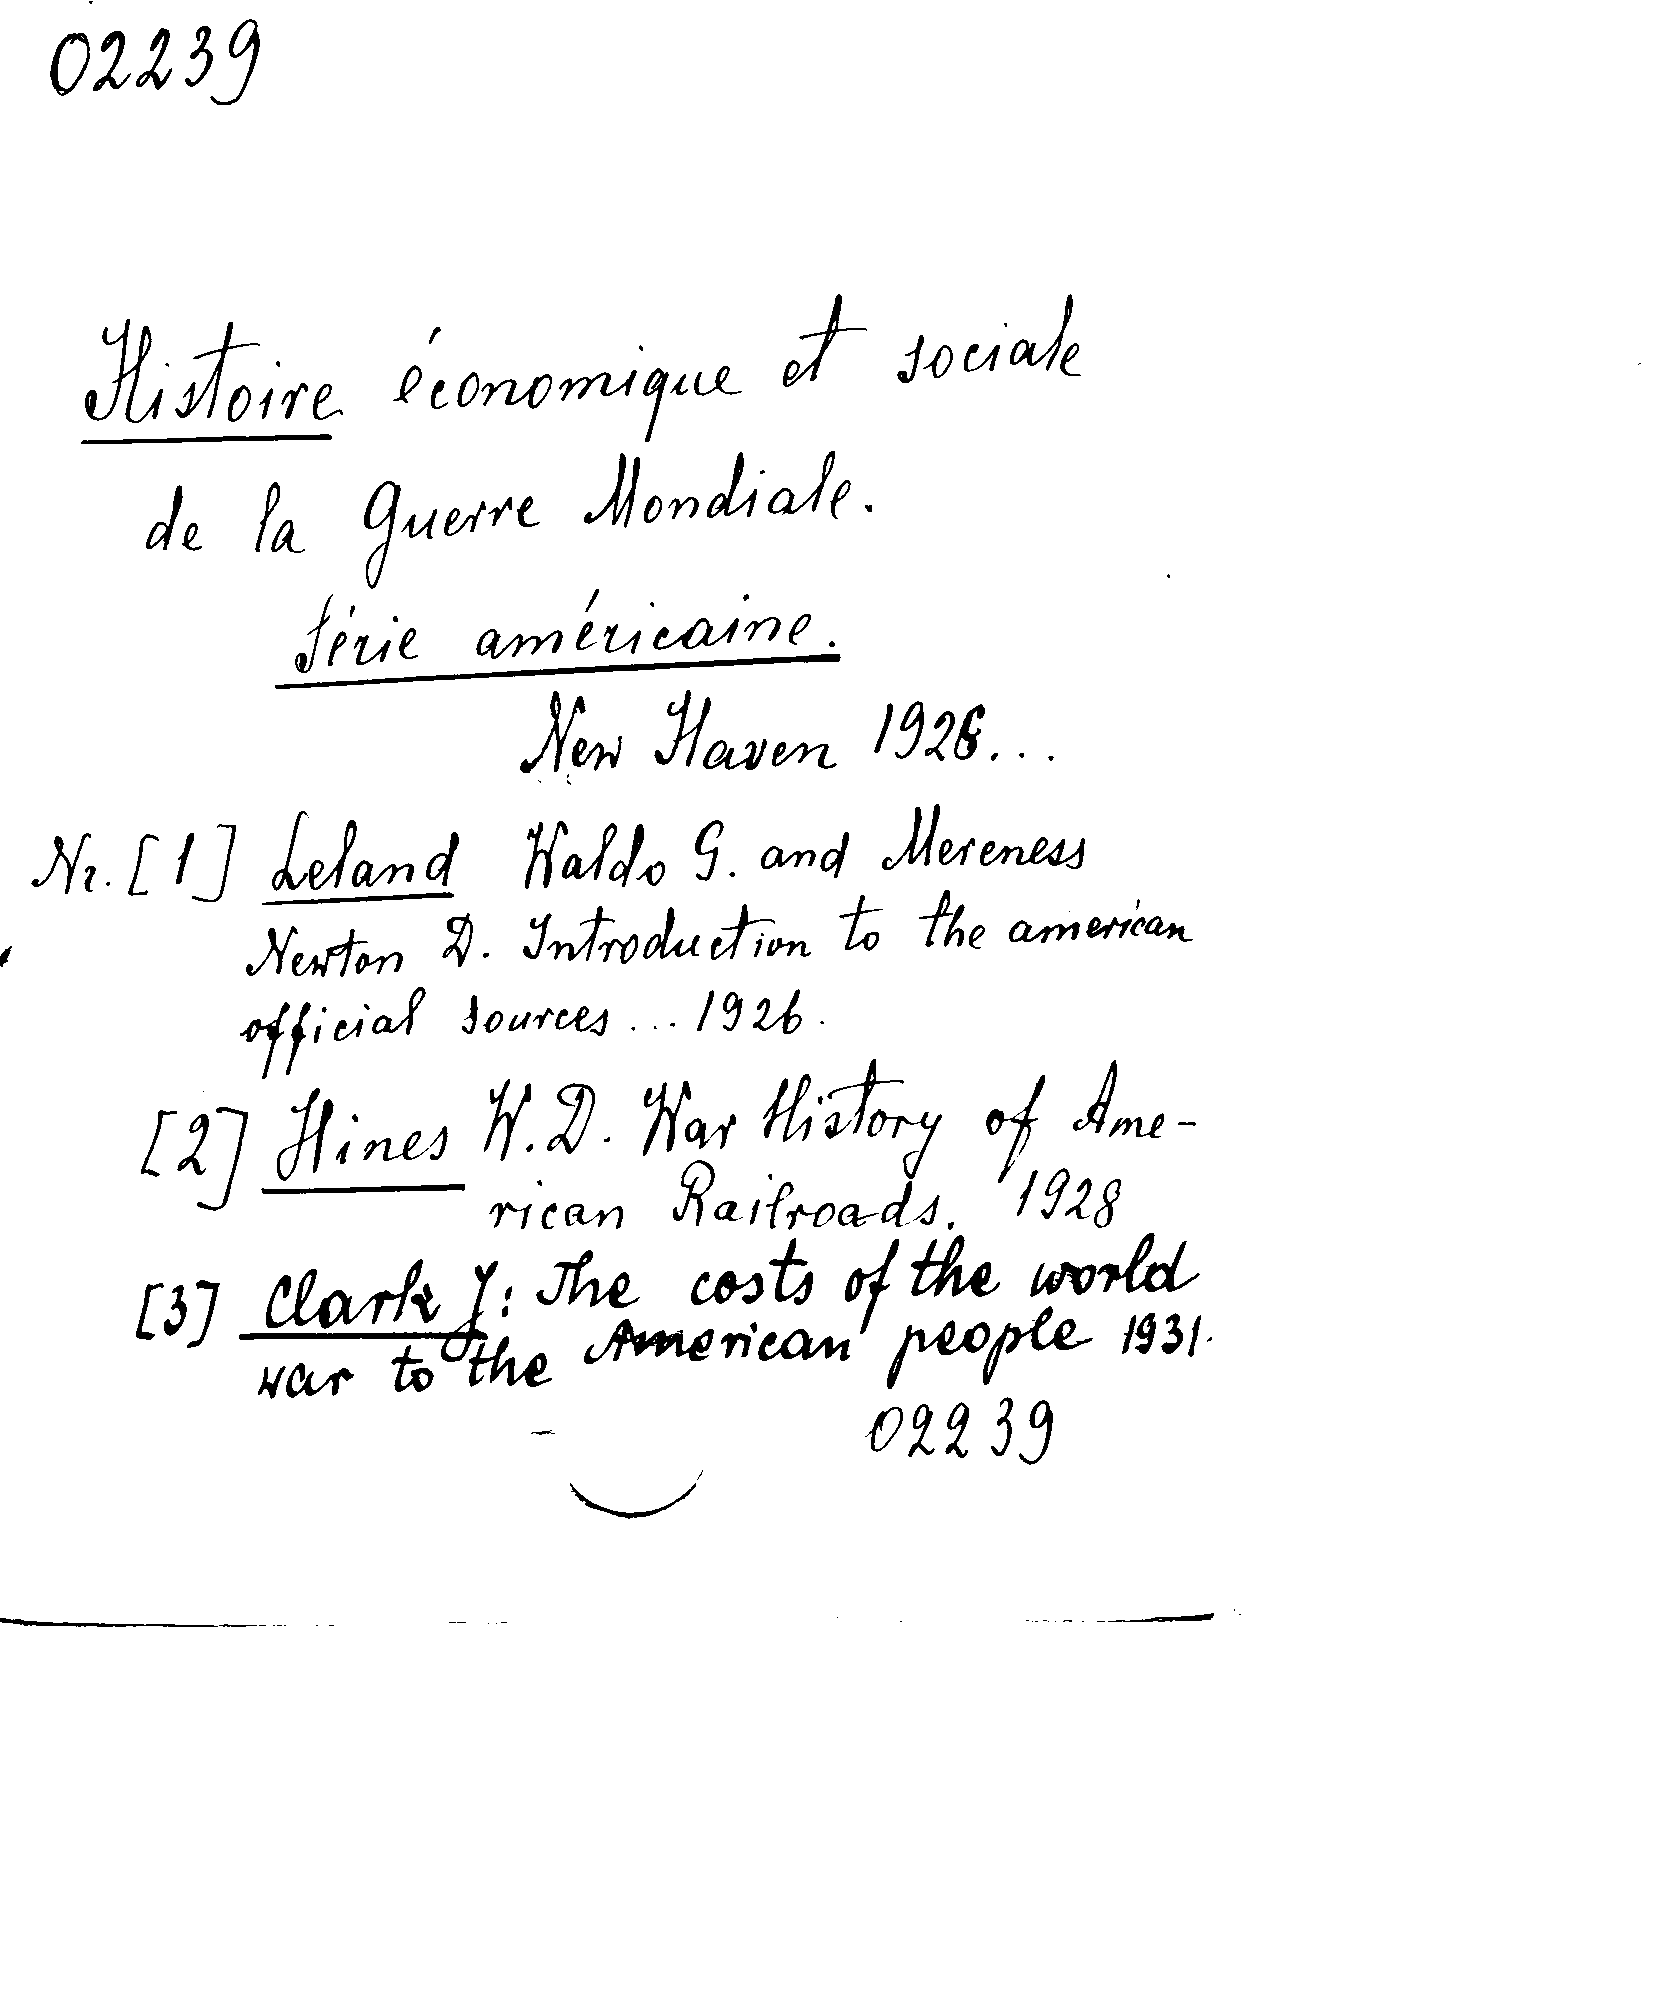 02239
Histoire économique et sociale
de la Guerre Mondiale.
Série américaine.
New Haven 1926...
Nr. [1] Leland Waldo G. and Mereness
Newton D. Introduction to the american
official sources ... 1926.
[2] Hines W. D. War History of Ame-
rican Railroads. 1928
[3] Clark J: The costs of the world
war to the American people 1931.
02239